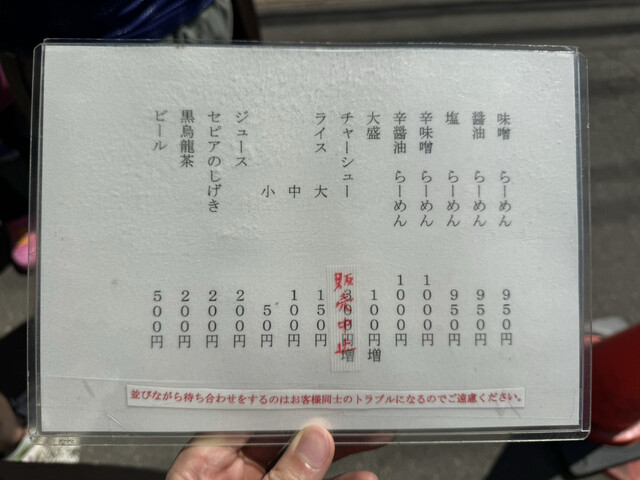 味噌 らーめん 950円
醤油 らーめん 950円
塩 らーめん 950円
辛味噌 らーめん 1000円
辛醤油 らーめん 1000円
大盛 100円増
チャーシュー 販売中止
ライス 大 150円
中 100円
小 50円
ジュース 200円
セピアのしげき 200円
黒烏龍茶 200円
ビール 500円
並びながら待ち合わせをするのはお客様同士のトラブルになるのでご遠慮ください。